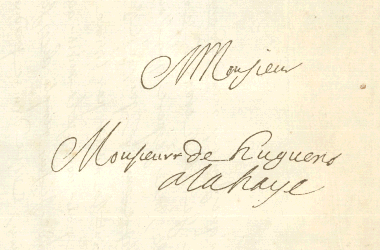 Monsieur
Monsieur de huguens
alahaye